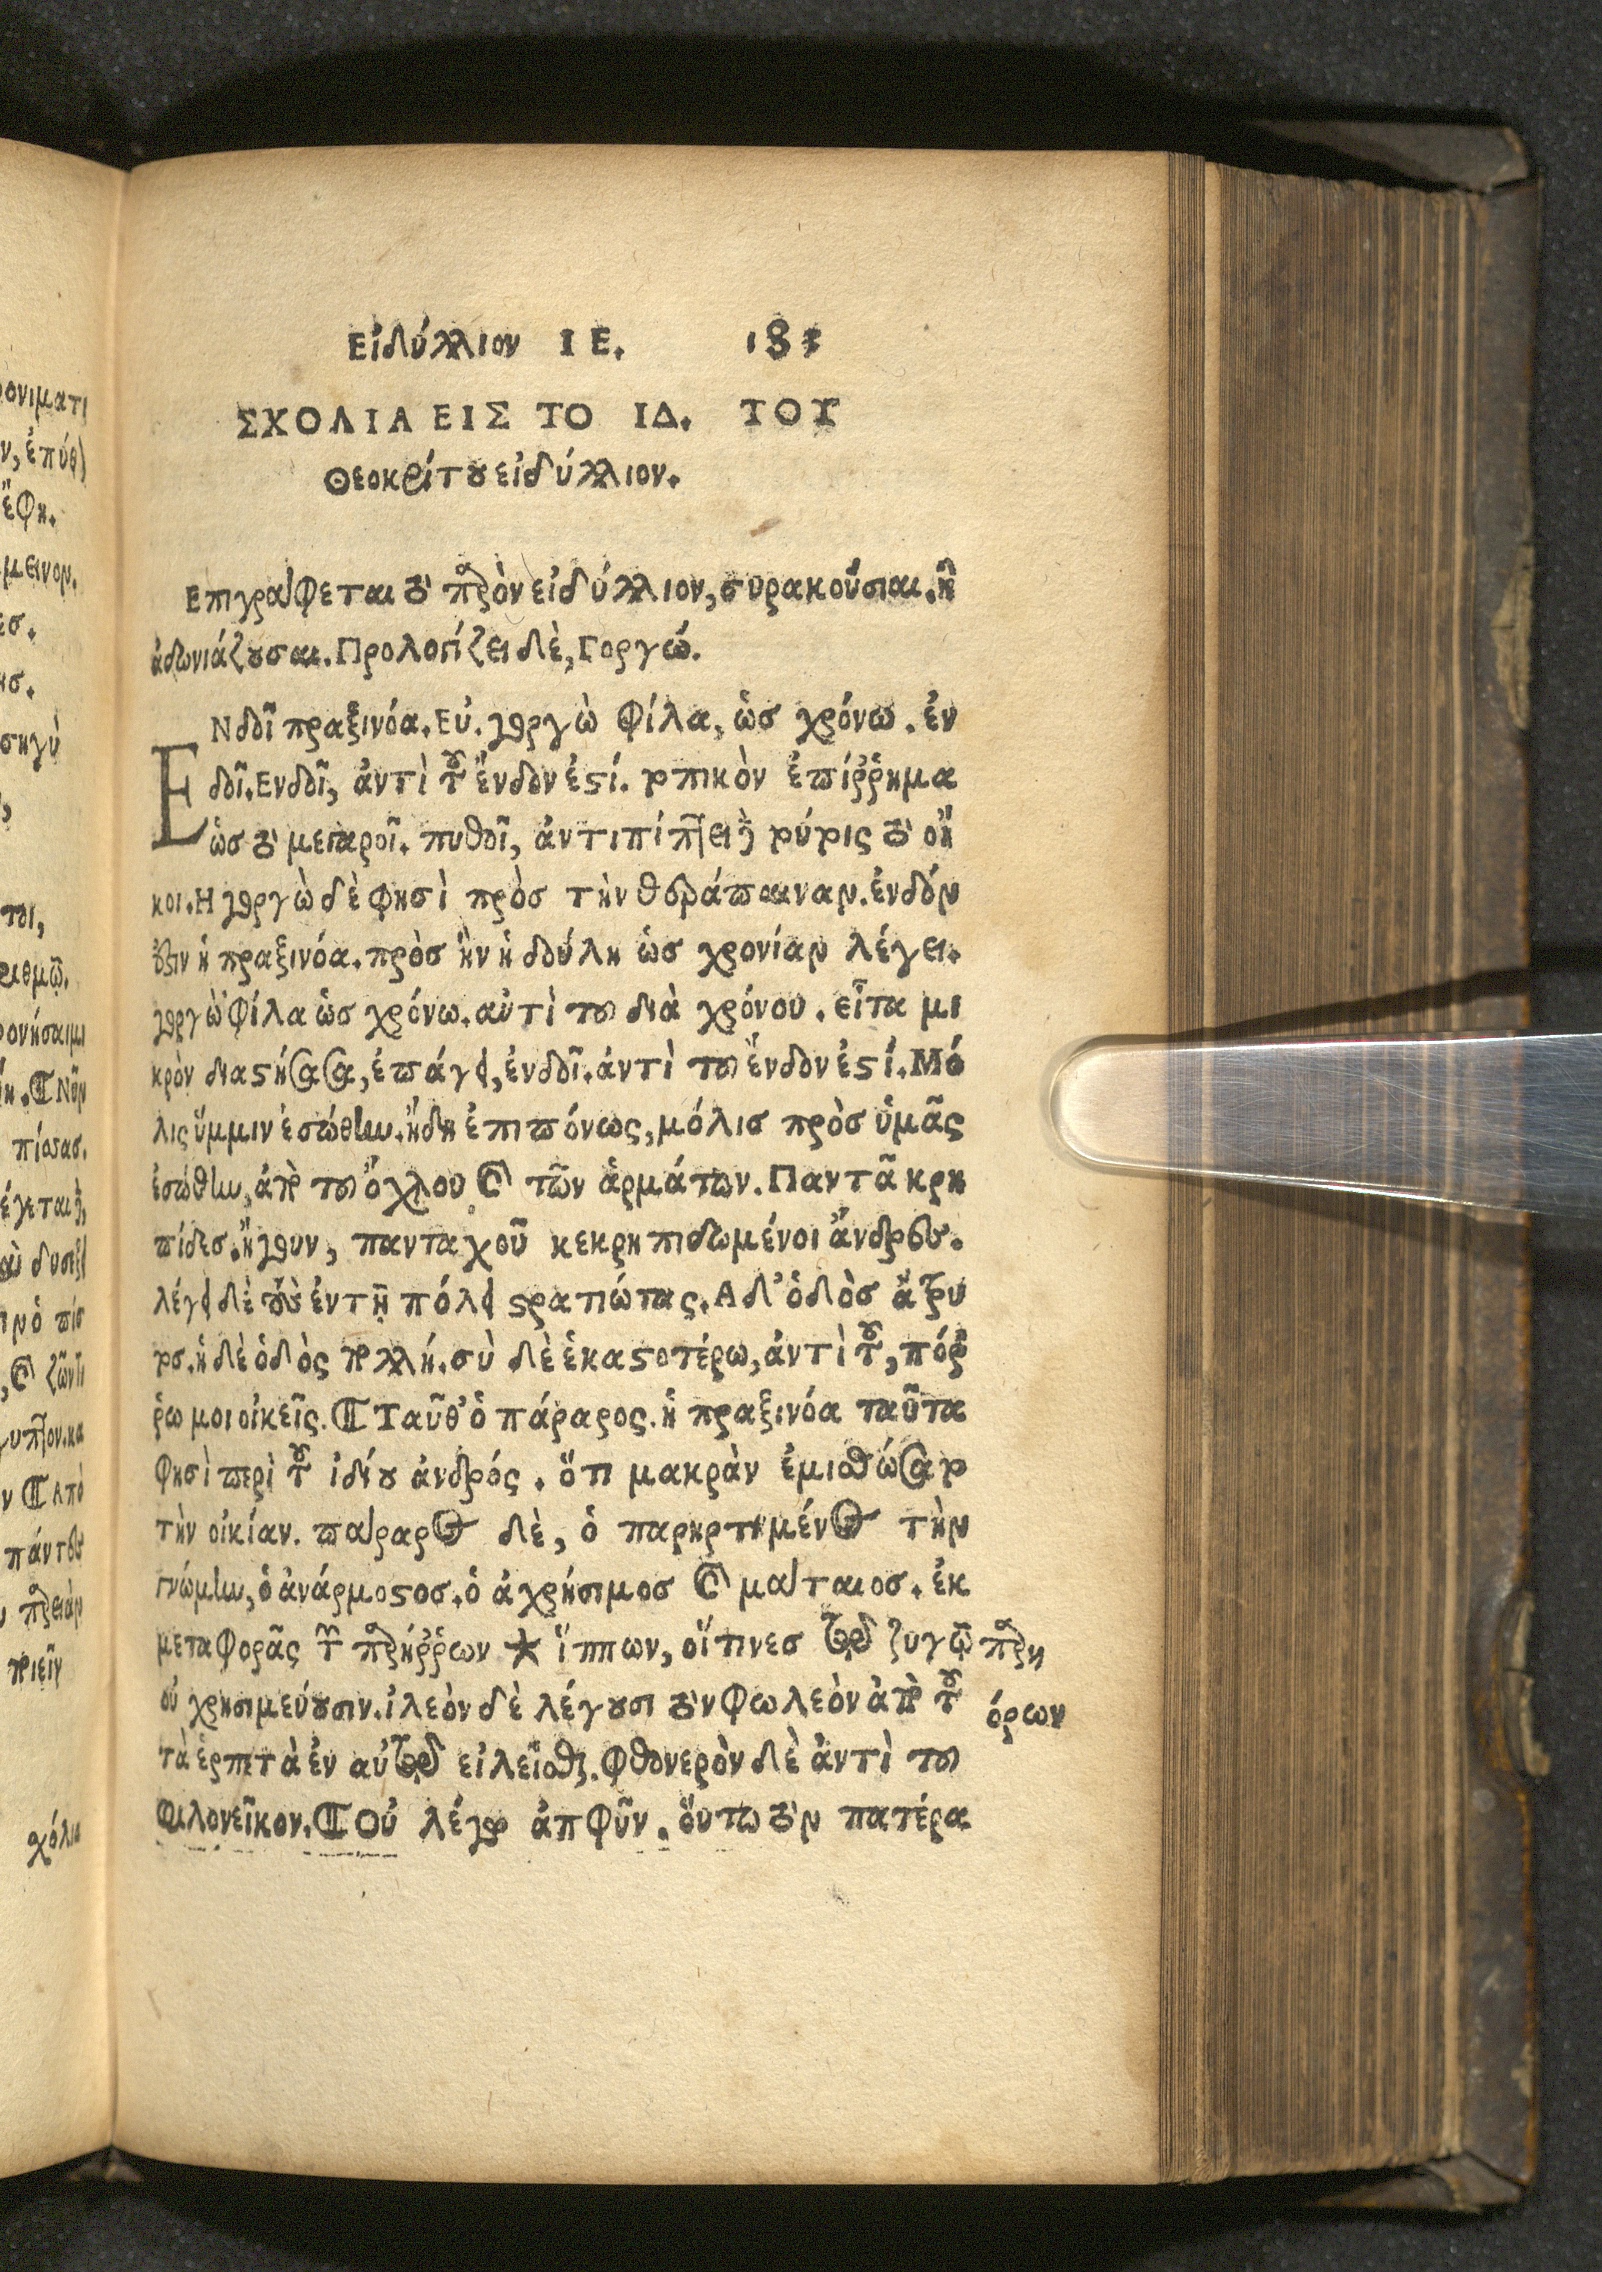 Εἰδύλλιον ΙΕ. 181
ΣΧΟΛΙΑ ΕΙΣ ΤΟ ΙΔ. ΤΟΥ
Θεοκρίτου εἰδύλλιον.
Επιγράφεται τὸ παρὸν εἰδύλλιον, συρακούσιαι. ἢ
ἀδωνιάζουσαι. Προλογίζει δὲ, Γοργώ.
ΕΝδοῖ πραξινόα. Εὐ. γοργὼ φίλα, ὡσ χρόνω. ἐν
δοῖ. Ενδοῖ, ἀντὶ τοῦ ἔνδον ἐστί. τοπικὸν ἐπίῤῥημα
ὡσ τὸ μεγαροῖ. πυθοῖ, ἀντιπίπτει δὲ τούτοις τὸ οἴ
κοι. Η γοργὼ δὲ φησὶ πρὸσ τὴν θεράπαιναν. ἐνδόν
ἐστιν ἡ πραξινόα. πρὸσ ἣν ἡ δούλη ὡσ χρονίαν λέγει.
γοργὼ φίλα ὡσ χρόνω. αὐτὶ τοῦ διὰ χρόνου. εἶτα μι
κρὸν διαστήσασα, ἐπάγει, ἐνδοῖ. ἀντὶ τοῦ ἔνδον ἐστί. Μό
λις ὔμμιν ἐσώθην. ἤδη ἐπιπόνως, μόλισ πρὸσ ὑμᾶς
ἐσώθην, ἀπὸ τοῦ ὄχλου καὶ τῶν ἁρμάτων. Παντᾶ κρη
πίδεσ. ἤγουν, πανταχοῦ κεκρηπιδωμένοι ἄνδρες.
λέγει δὲ τοὺς ἐν τῇ πόλει στρατιώτας. Α δ' ὁδὸσ ἄτρυ
τοσ. ἡ δὲ ὁδὸς πολλή. σὺ δὲ ἑκαστοτέρω, ἀντὶ τοῦ, πόῤ
ῥω μοι οἰκεῖς. ¶ Ταῦθ' ὁ πάραρος. ἡ πραξινόα ταῦτα
φησὶ περὶ τοῦ ἰδίου ἀνδρός. ὅτι μακρὰν ἐμισθώσατο
τὴν οἰκίαν. πάραρος δὲ, ὁ παρηρτημένος τὴν
γνώμην, ὁ ἀνάρμοστοσ. ὁ ἀχρήσιμοσ καὶ μάταιοσ. ἐκ
μεταφορᾶς τῶν παρήῤῥων * ἵππων, οἵτινεσ τῷ ζυγῷ παρη
οὐ χρησιμεύουσιν. ἰλεὸν δὲ λέγουσι τὸν φωλεὸν ἀπὸ τοῦ όρων
τὰ ἑρπετὰ ἐν αὐτῷ εἰλεῖσθαι. Φθονερὸν δὲ ἀντὶ τοῦ
φιλονεῖκον. ¶ Οὐ λέγω ἀπφῦν. ὅυτω τὸν πατέρα